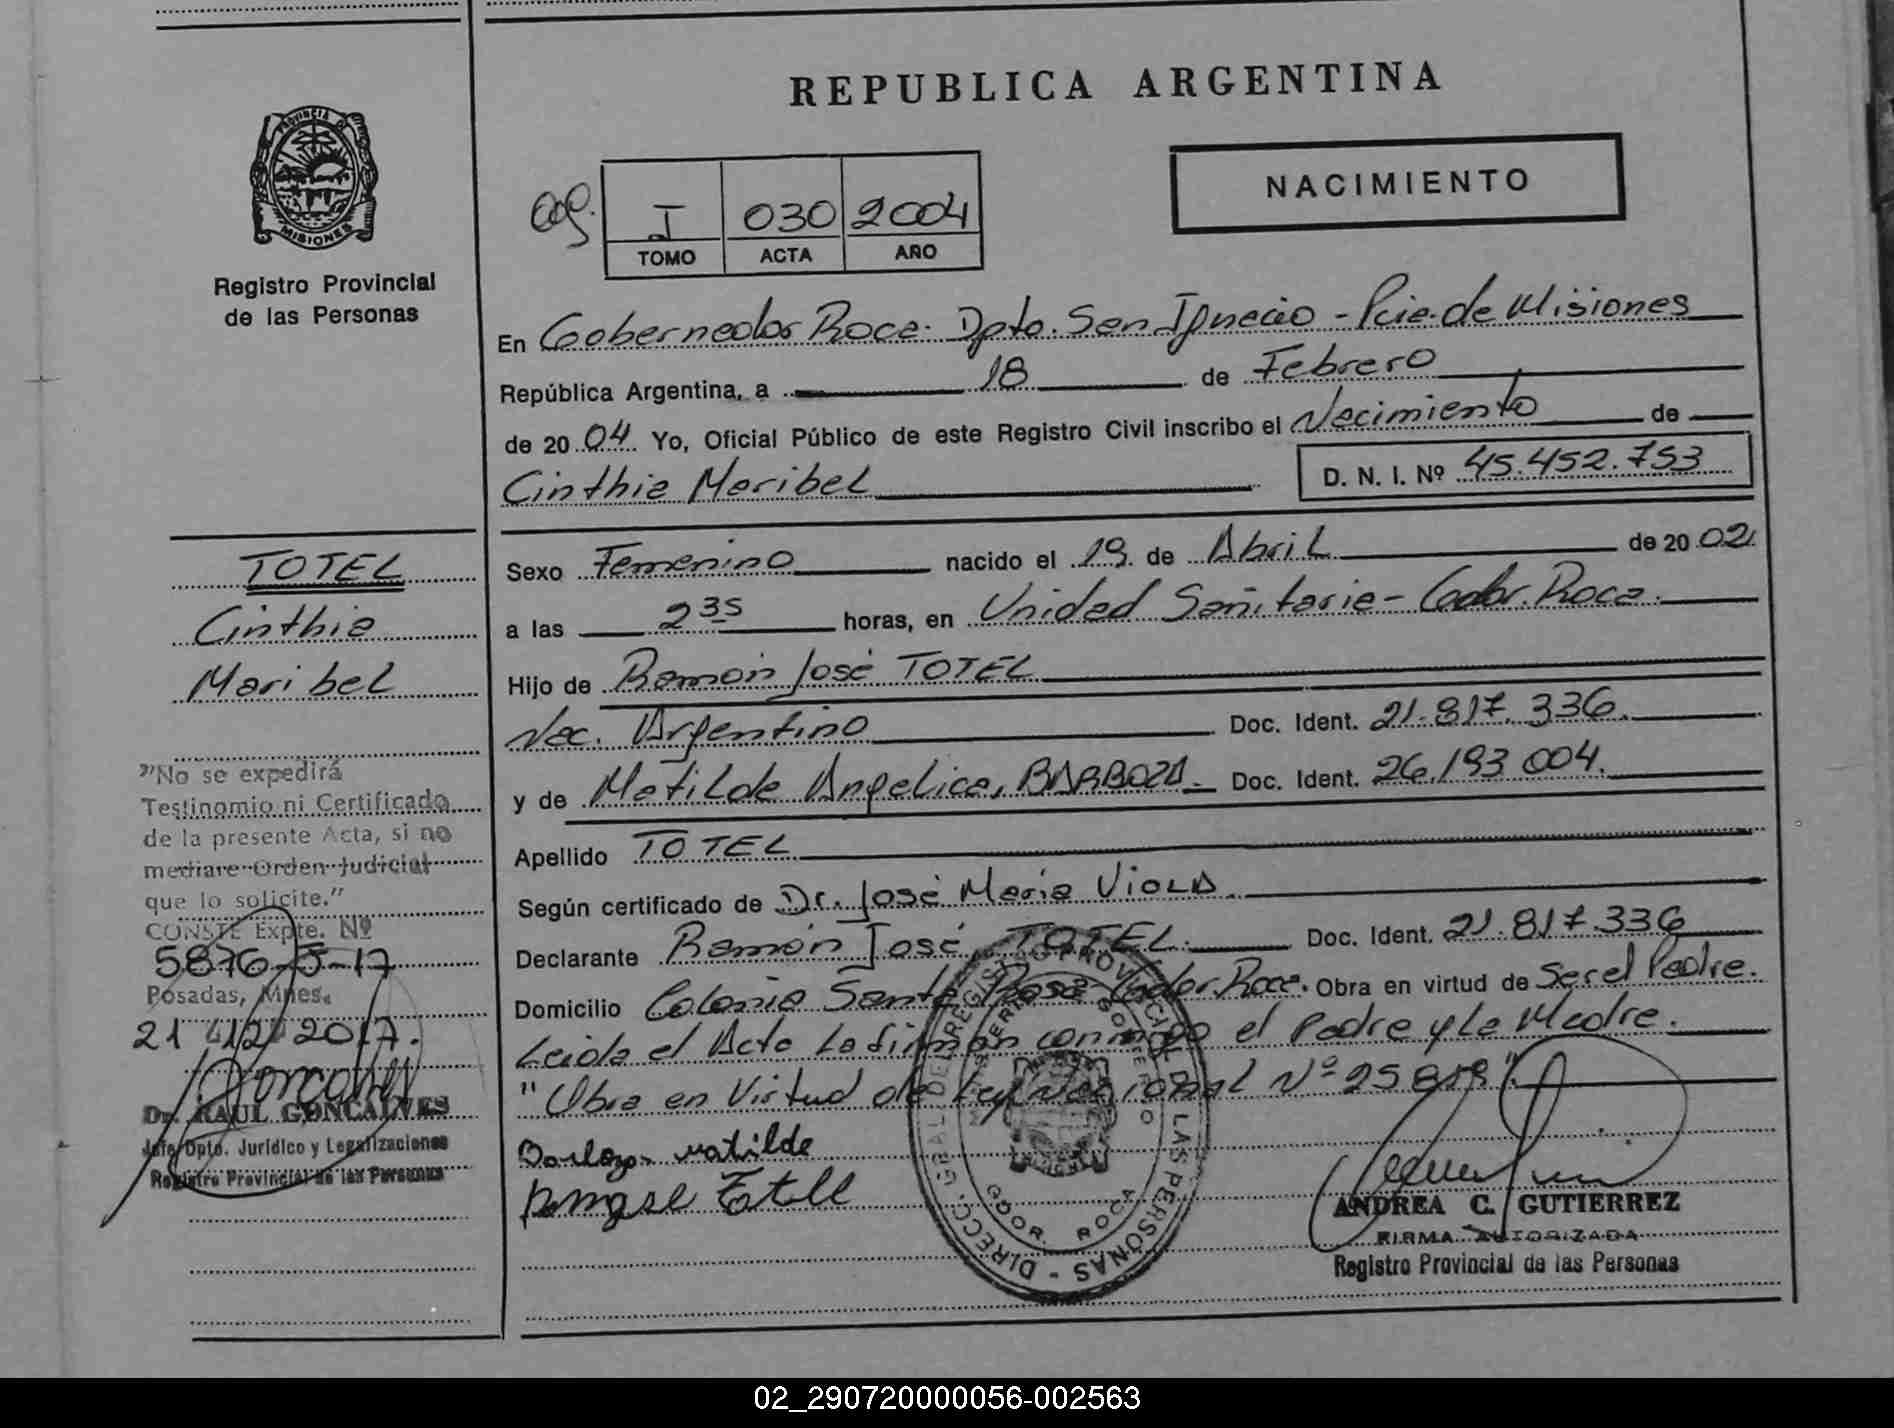 PROVINCIA DE
MISIONES
Registro Provincial
de las Personas
REPUBLICA ARGENTINA
NACIMIENTO
I 030 2004
TOMO ACTA AÑO
En Gobernador Roca. Dpto. San Ignacio - Pcia. de Misiones
República Argentina, a 18 de Febrero
de 20 04 Yo, Oficial Público de este Registro Civil inscribo el Nacimiento de
Cinthia Maribel D. N. I. Nº 45.452.753
Sexo Femenino nacido el 19 de Abril de 20 02
a las 2 35 horas, en Unidad Sanitaria - Gdor. Roca.
Hijo de Ramón José TOTEL
Nac. Argentino Doc. Ident. 21.817.336.
y de Matilde Angelica, BARBOZA. Doc. Ident. 26.193.004.
Apellido TOTEL
Según certificado de Dr. José Maria VIOLA.
Declarante Ramón José TOTEL. Doc. Ident. 21.817.336
Domicilio Colonia Santa Rosa Gdor. Roca. Obra en virtud de Ser el Padre.
Leida el Acta la firman conmigo el Padre y la Madre.
"Obra en Virtud de Ley Nacional Nº 25819".
matilde
ANDREA C. GUTIERREZ
FIRMA AUTORIZADA
Registro Provincial de las Personas
DIRECC. GRAL DE REGISTRO PROVINCIAL DE LAS PERSONAS -
GDOR. ROCA
TOTEL
Cinthia
Maribel
"No se expedirá
Testinomio ni Certificado
de la presente Acta, si no
mediare Orden Judicial
que lo solicite."
CONSTE Expte. Nº
5876-J-17
Posadas, Mnes.
21 12 2017.
Dr. RAUL GONCALVES
Jefe Dpto. Jurídico y Legalizaciones
Registro Provincial de las Personas
02_290720000056-002563